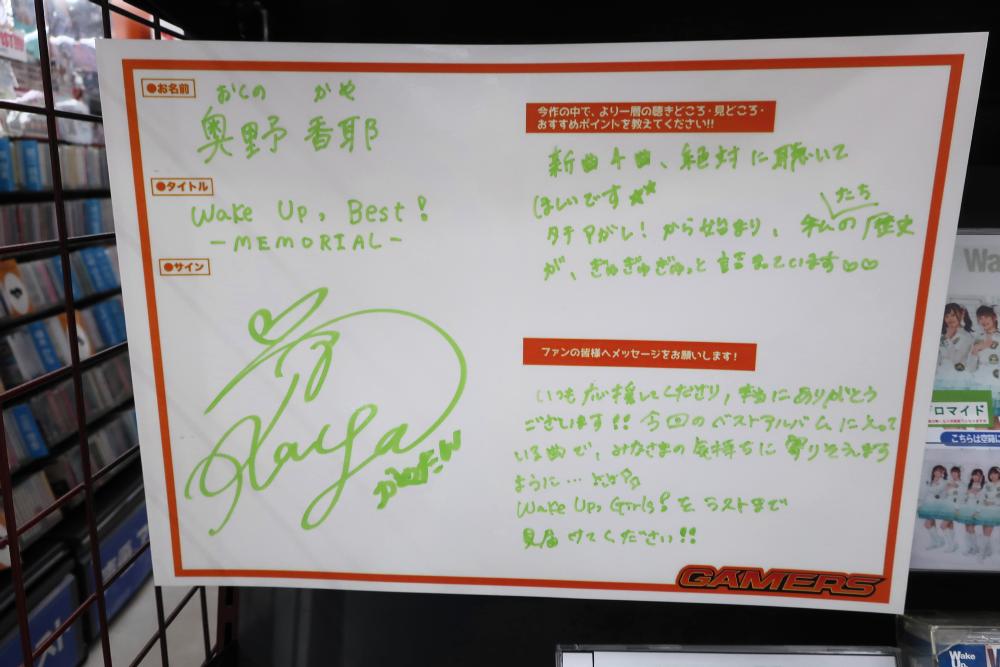 ●お名前
おくの かや
奥野 香耶
●タイトル
Wake Up, Best!
-MEMORIAL-
●サイン
Kaya
かやたん
今作の中で、より一層の聴きどころ・見どころ・
おすすめポイントを教えてください!!
新曲4曲、絶対に聴いて
ほしいです
タチアがれ!から始まり、私たちの歴史
が、ぎゅぎゅぎゅっと詰まっています♡♡
ファンの皆様へメッセージをお願いします!
いつも応援してくださり、本当にありがとう
ございます!!今回のベストアルバムに入って
いる曲で、みなさまの気持ちに寄りそえます
ように…
Wake Up, Girls!をラストまで
見届けてください!!
GAMERS
Wa
ロマイド
こちらは空箱に
Wake
Up,